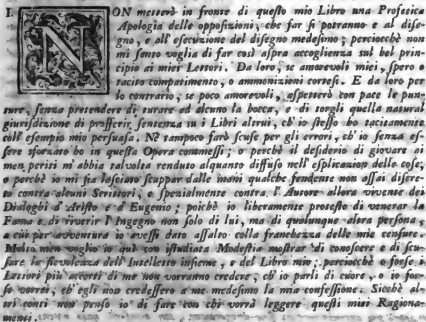 I. NON metterò in fronte di questo mio Libro una Profetica
Apologia delle opposizioni, che far si potranno e al dise-
gno, e all' esecuzione del disegno medesimo; perciocchè non
mi sento voglia di far così aspra accoglienza sul bel prin-
cipio ai miei Lettori. Da loro, se amorevoli miei, spero o
tacito compatimento, o ammonizioni cortesi. E da loro per
lo contrario, se poco amorevoli, aspetterò con pace le pun-
ture, senza pretendere di turare ad alcuno la bocca, e di torgli quella natural
giurisdizione di profferir sentenza su i Libri altrui, ch' io stesso ho tacitamente
coll' esempio mio persuasa. Nè tampoco farò scuse per gli errori, ch' io senza es-
sere sforzato ho in quest' Opera commessi; o perchè il desiderio di giovare ai
men periti m' abbia talvolta renduto alquanto diffuso nell' esplicazion delle cose,
o perchè io mi sia lasciato scappar dalle mani qualche fendente non assai discre-
to contra alcuni Scrittori, e spezialmente contra l' Autore allora vivente dei
Dialoghi d' Aristo e d' Eugenio; poichè io liberamente protesto di venerar la
Fama e di riverir l' Ingegno non solo di lui, ma di qualunque altra persona,
a cui per avventura io avessi dato assalto colla franchezza delle mie censure.
Molto men voglio io quì con istudiata Modestia mostrar di conoscere e di scu-
sare la fievolezza dell' Intelletto insieme, e del Libro mio; perciocchè o forse i
Lettori più accorti di me non vorranno credere, ch' io parli di cuore, o io for-
se vorrei, ch' egli non credessero a me medesimo la mia confessione. Sicchè al-
tri conti non penso io di fare con chi vorrà leggere questi miei Ragiona-
menti.